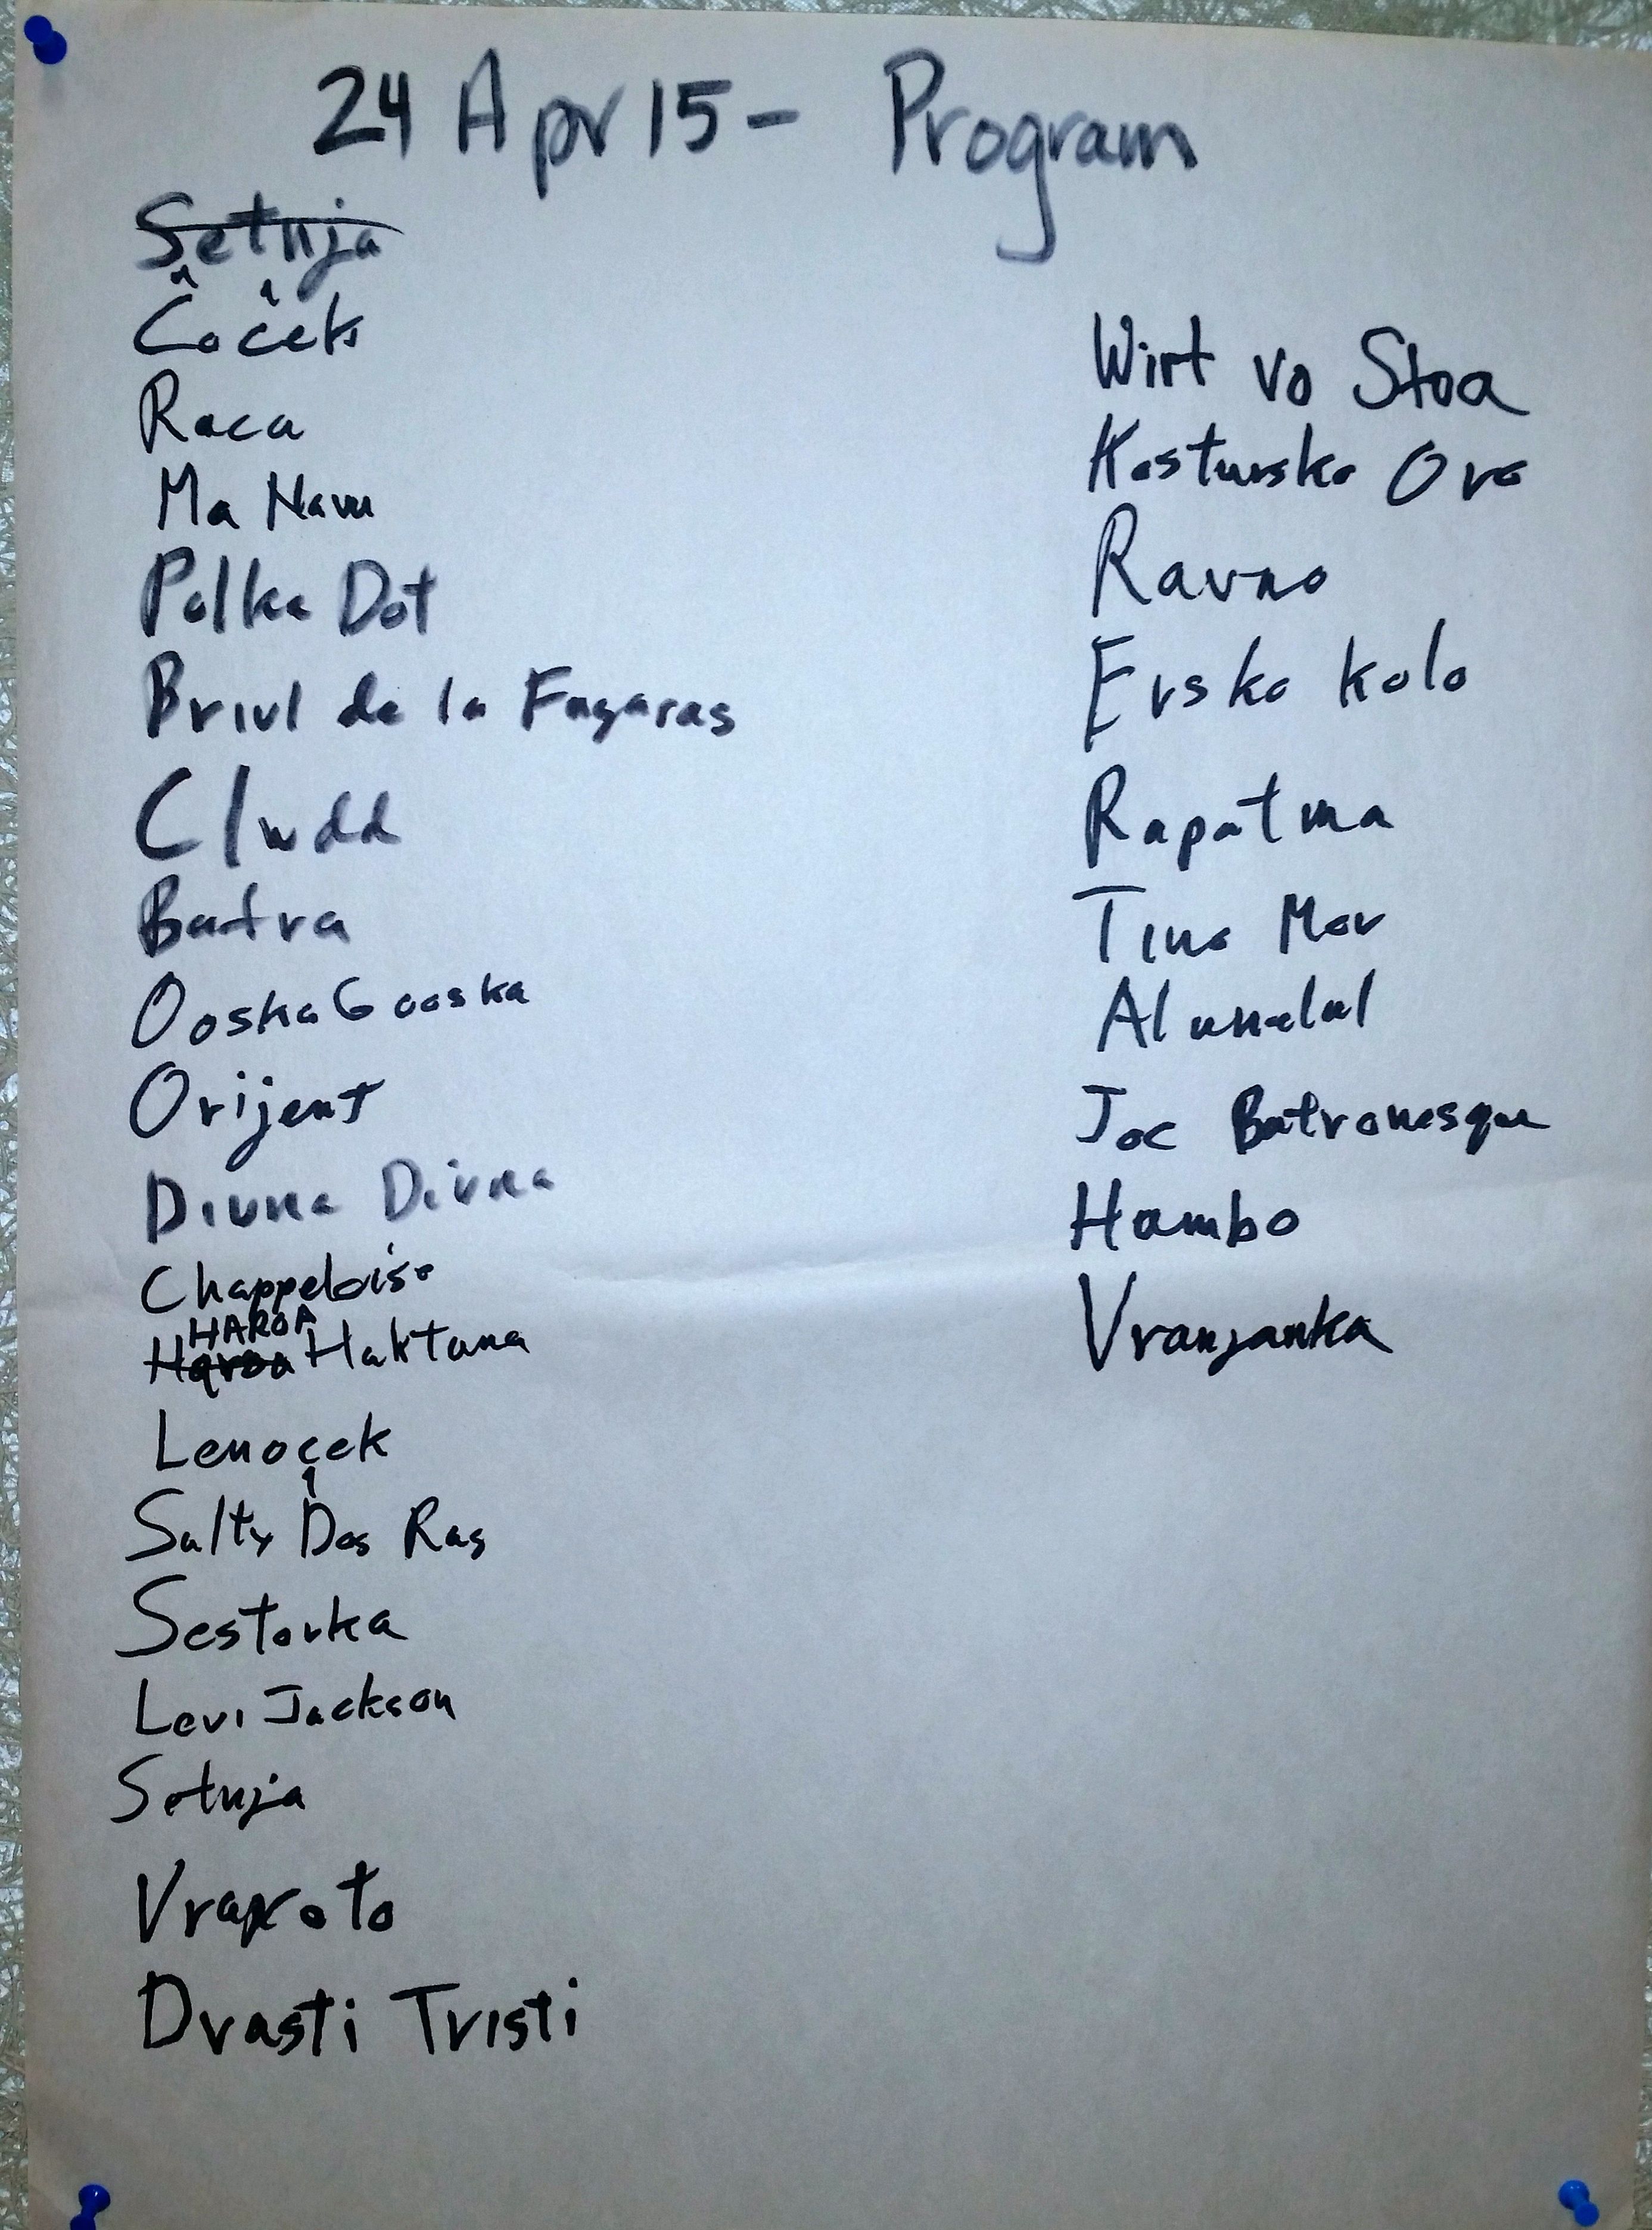 24 Apr 15 - Program
Setnja
Čoček
Raca
Ma Navu
Polka Dot
Briul de la Fagaras
Clwdd
Batra
Ooska Gooska
Orijent
Divna Divna
Chappeloise
HAROA
Haroa Haktana
Lenoçek
Salty Dog Rag
Sestorka
Levi Jackson
Setnja
Vrapcoto
Drasti Tristi
Wirt vo Stoa
Kostursko Oro
Ravno
Ersko kolo
Rapatma
Tino Mor
Alunelul
Joc Batronesque
Hambo
Vranjanka